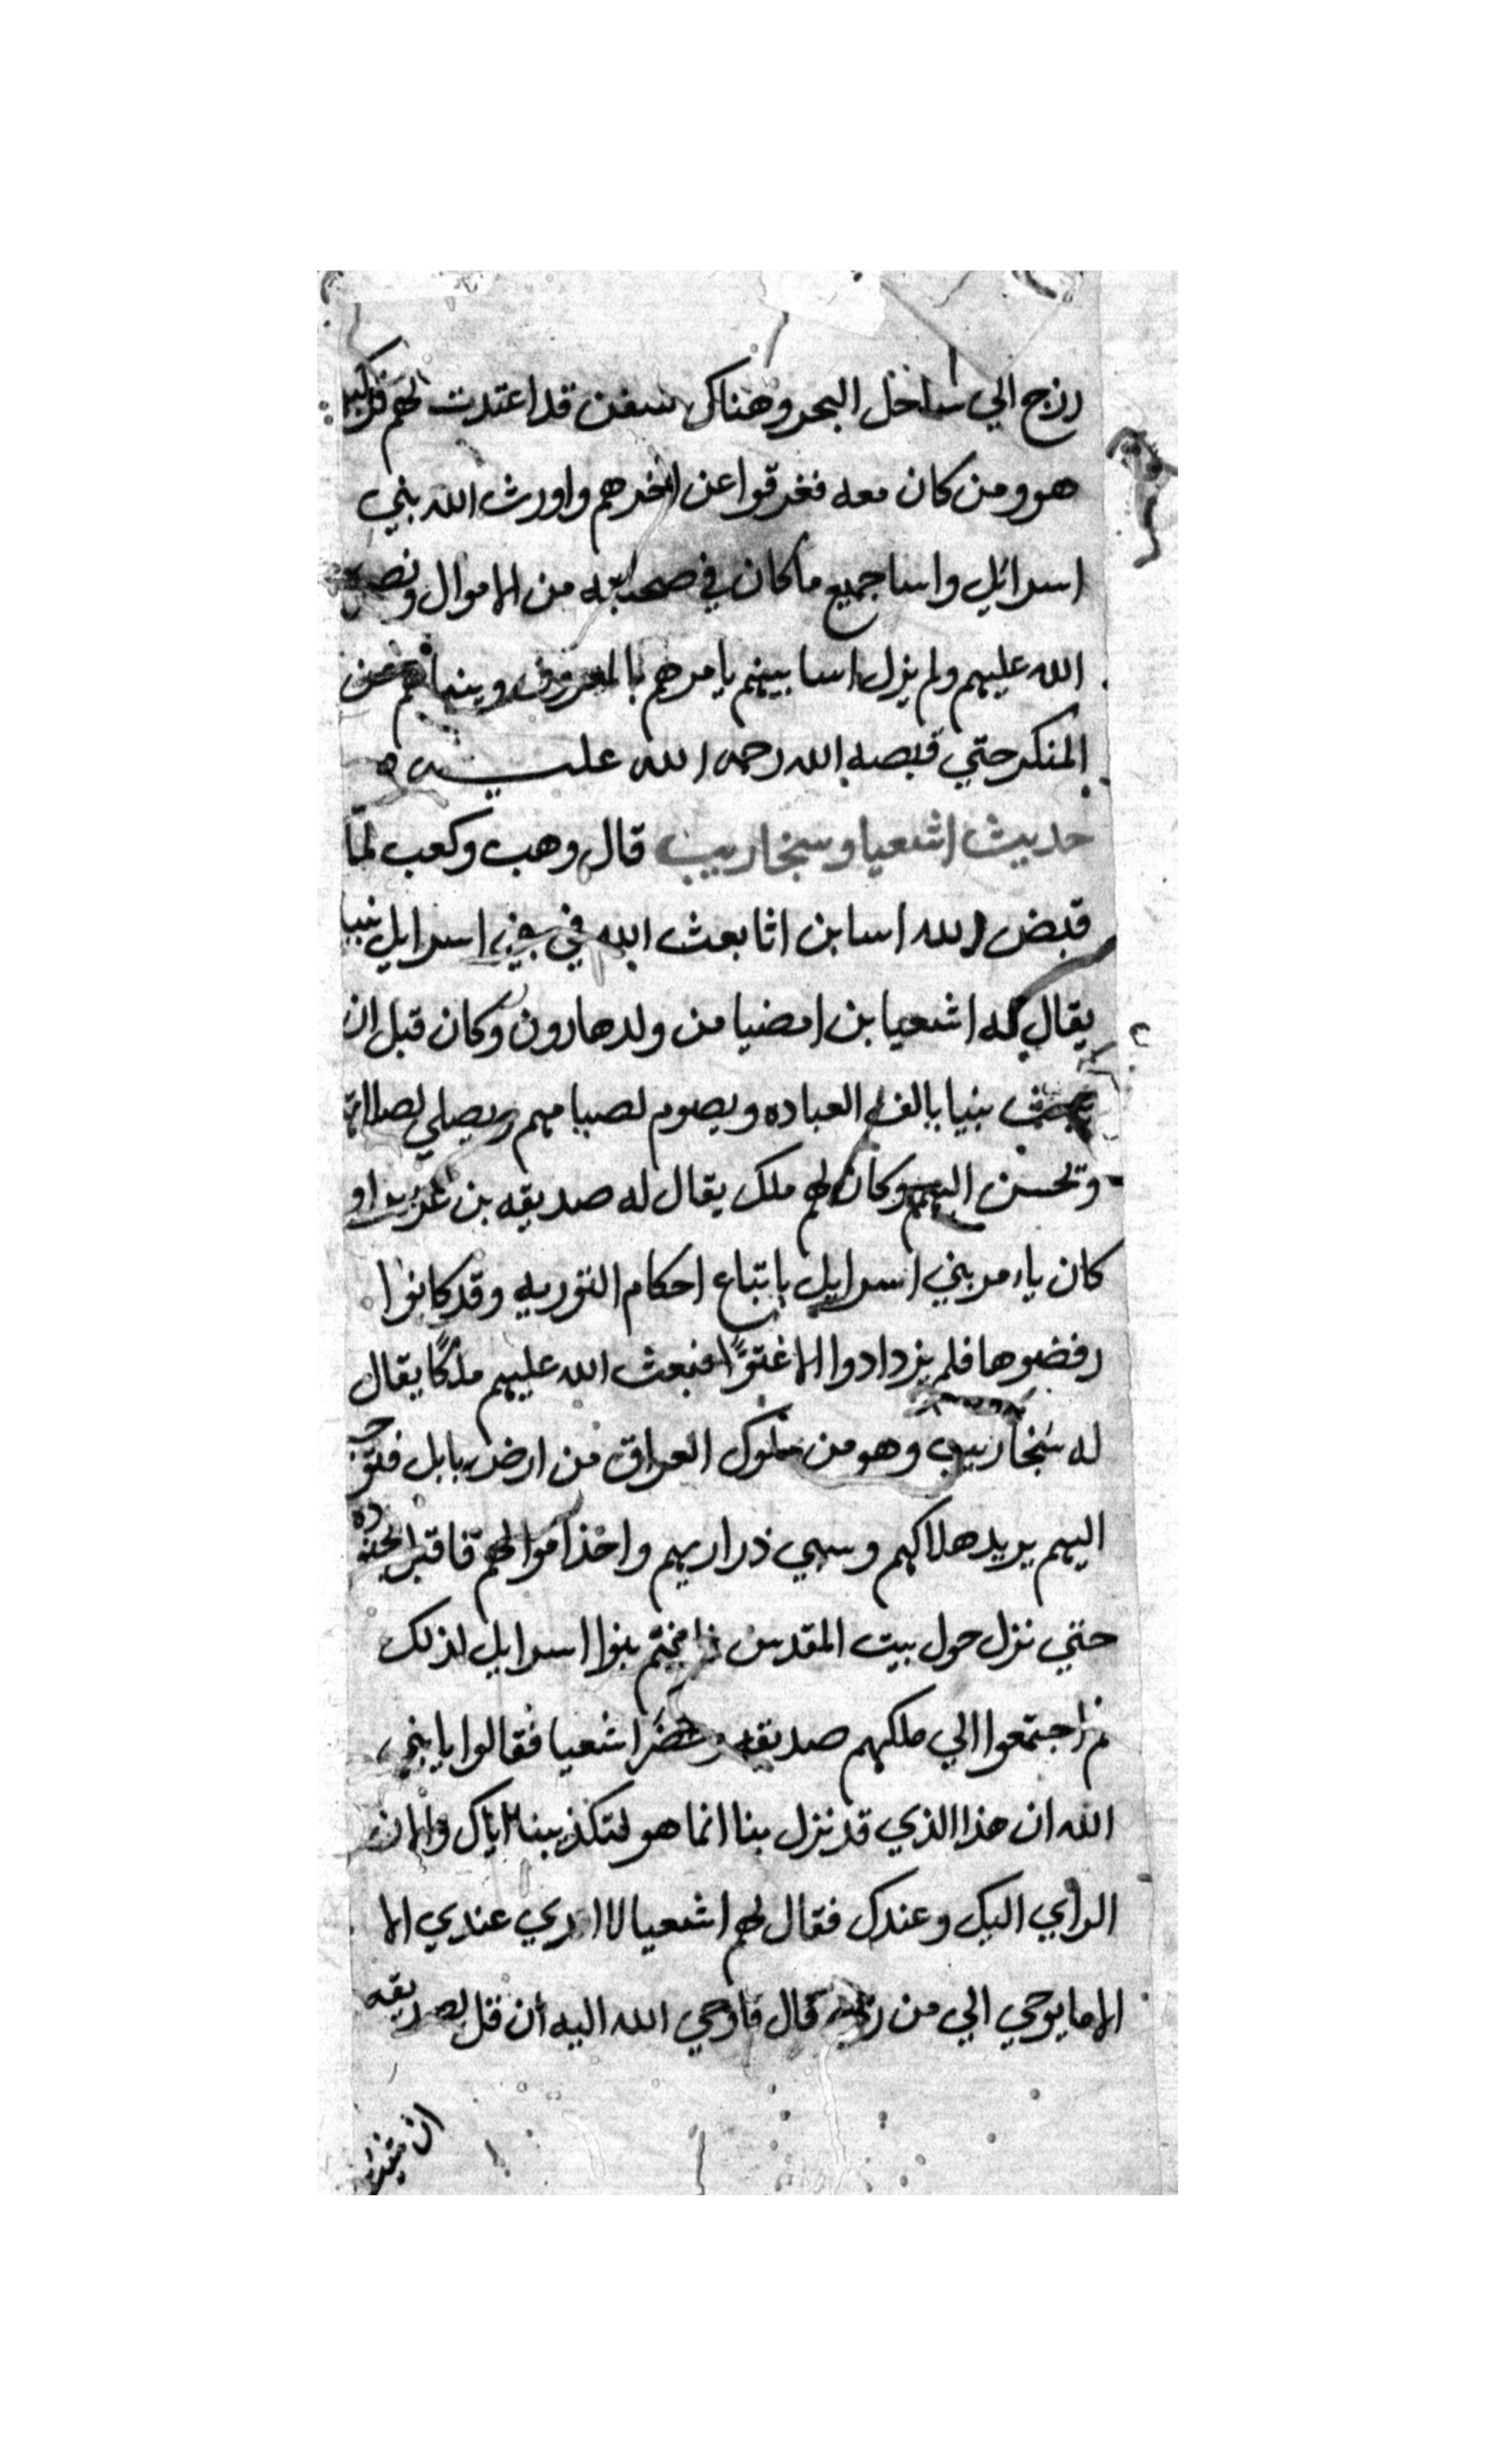 رزج الي ساحل البحر وهناك سفن قد اعتدت لهم فركب
هو ومن كان معه فغرقوا عن اخرهم واورث الله بني
اسرائيل واسا جميع ما كان في صحبته من الاموال ونصر
الله عليهم ولم يزل اسا بينهم يامرهم بالمعروف وينهاهم عن
المنكر حتي قبضه الله رحمه الله عليه
حديث اشعيا وسنجاريب قال وهب وكعب لمّا
قبض الله اسا بن اثا بعث الله في بني اسرايل نبيا
يقال له اشعيا بن امضيا من ولد هارون وكان قبل ان
يبعث بنيا يالف العباده ويصوم لصيامهم ويصلي لصلاتهم
وتحسن اليهم وكان لهم ملك يقال له صديقه بن
كان يا مر بني اسرايل باتباع احكام التوريه وقد كانوا
رفضوها فلم يزدادوا الا غتوًا فبعث الله عليهم ملكًا يقال
له سنجاريب وهو من ملوك العراق من ارض بابل فتوجه
اليهم يريد هلاكهم وسبي ذراريهم واخذ اموالهم فاقبل بجنوده
حتي نزل حول بيت المقدس بنوا اسرايل لذلك
ثم اجتمعوا الي ملكهم صديقه وحضر اشعيا فقالوا يا بني
الله ان هذا الذي قد نزل بنا انما هو لتكذيبنا اياك والان
الراي اليك وعندك فقال لهم اشعيا لا اري عندي الا
الا ما يوحي الي من ربي قال فاوحي الله اليه أن قل لصديقه
ان